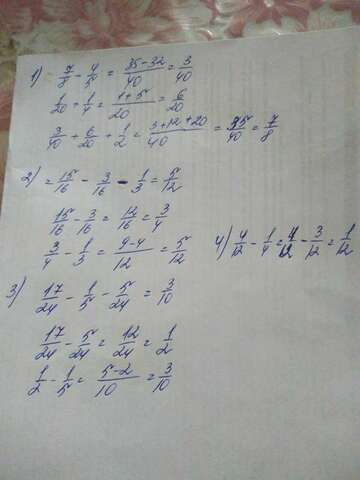 1) 7/8 - 4/5 = 35-32/40 = 3/40
1/20 + 1/4 = 1+5/20 = 6/20
3/40 + 6/20 + 1/2 = 3+12+20/40 = 35/40 = 7/8
2) = 15/16 - 3/16 - 1/3 = 5/12
15/16 - 3/16 = 12/16 = 3/4
3/4 - 1/3 = 9-4/12 = 5/12
4) 4/12 - 1/4 = 4/12 - 3/12 = 1/12
3) 17/24 - 1/5 - 5/24 = 3/10
17/24 - 5/24 = 12/24 = 1/2
1/2 - 1/5 = 5-2/10 = 3/10